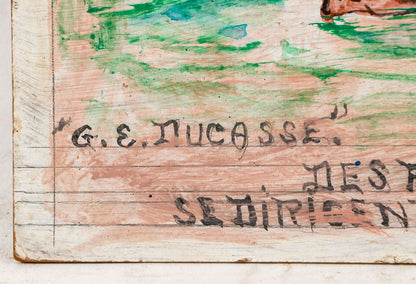 "G.E. DUCASSE."
DES
SEDIRIGEN